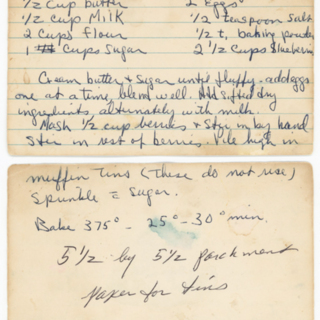 1/2 cup butter 2 eggs
1/2 cup Milk 1/2 teaspoon salt
2 cups flour 1/2 t. baking powder
1 Cups Sugar 2 1/2 Cups blueberri
Cream butter & Sugar until fluffy. add eggs
one at a time, blend well. Add Sifted dry
ingredients, alturnately with milk.
Mash 1/2 cup berries & Stir in by hand.
Stir in rest of berries. Pile high in
muffin tins (These do not use)
Sprinkle = Sugar.
Bake 375° - 25° - 30° min.
5 1/2 by 5 1/2 parchment
paper for tins